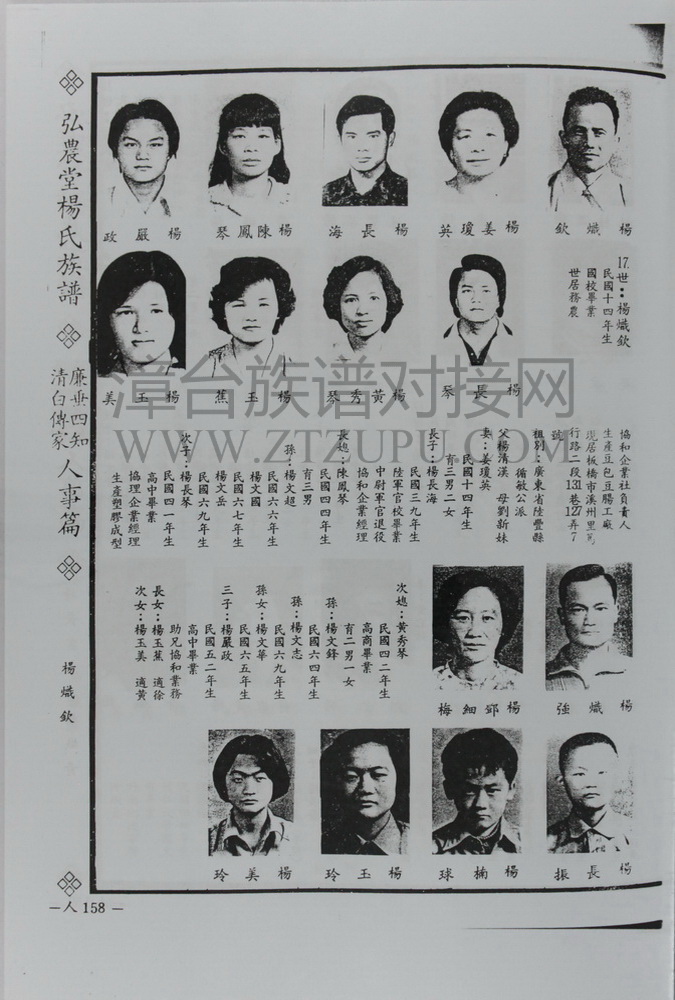 弘農堂楊氏族譜
廉垂四知
清白傳家
人事篇
楊熾欽
楊熾欽
楊姜瓊英
楊長海
楊陳鳳琴
楊嚴政
17.世：楊熾欽
民國十四年生
國校畢業
世居務農
楊長琴
楊黃秀琴
楊玉蕉
楊玉美
漳台族谱对接网
WWW.ZTZUPU.COM
協和企業社負責人
生產豆包豆腸工廠
現居板橋市溪州里
行路二段131巷127弄7
號
祖別：廣東省陸豐縣
循敏公派
父楊清漢　母劉新妹
妻：姜瓊英
民國十四年生
育三男二女
長子：楊長海
民國三九年生
陸軍官校畢業
中尉軍官退役
協和企業經理
長媳：陳鳳琴
民國四四年生
育三男
孫：楊文超
民國六六年生
楊文國
民國六七年生
楊文岳
民國六九年生
次子：楊長琴
民國四一年生
高中畢業
協理企業經理
生產塑膠成型
次媳：黃秀琴
民國四二年生
高商畢業
育二男一女
孫：楊文鋒
民國六四年生
孫：楊文志
民國六九年生
孫女：楊文華
民國六五年生
三子：楊嚴政
民國五二年生
高中畢業
助兄協和業務
長女：楊玉蕉　適徐
次女：楊玉美　適黃
楊熾強
楊鄧細梅
楊長振
楊楠球
楊玉玲
楊美玲
—人 158 —